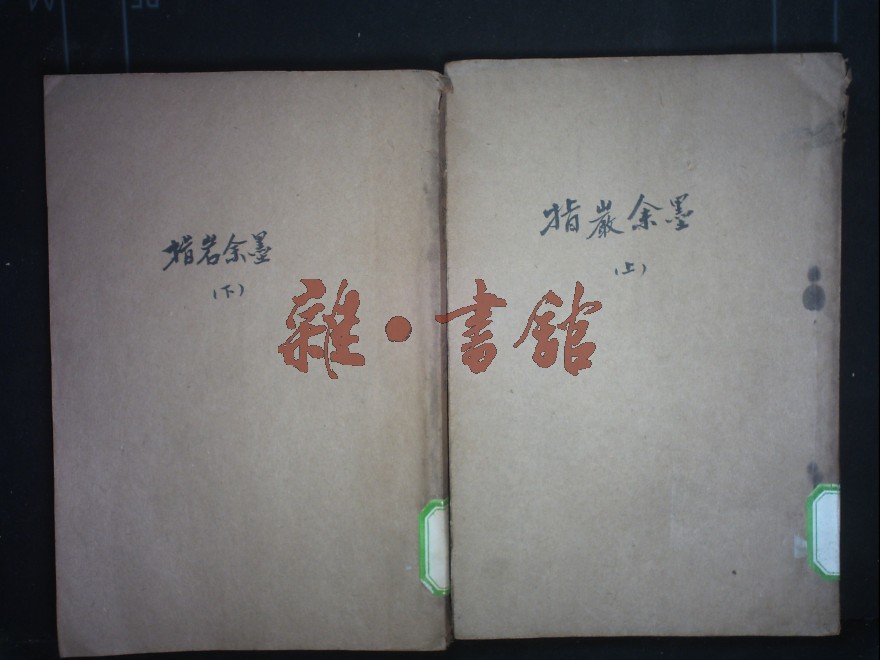 指巖余墨
(上)
指岩余墨
(下)
雜·書館